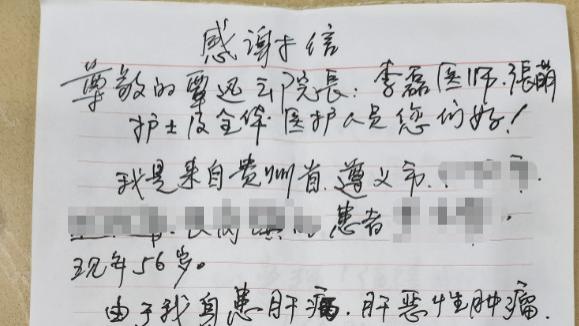 感谢信
尊敬的覃迅云院长：李磊医师、張萌
护士及全体医护人员您们好！
我是来自贵州省遵义市、
患者
现年56岁。
由于我身患肝癌，肝恶性肿瘤.